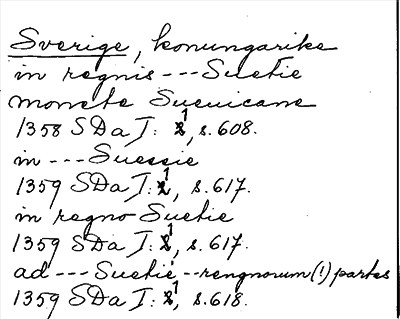 Sverige, konungarike
in regnis --- Suetie
monete Sueuicane
1358 SDa I: 1, s. 608.
in --- Suessie
1359 SDa I: 1, s. 617.
in regno Suetie
1359 SDa I: 1, s. 617.
ad --- Suetie -- rengnorum (!) partes
1359 SDa I: 1, s. 618.